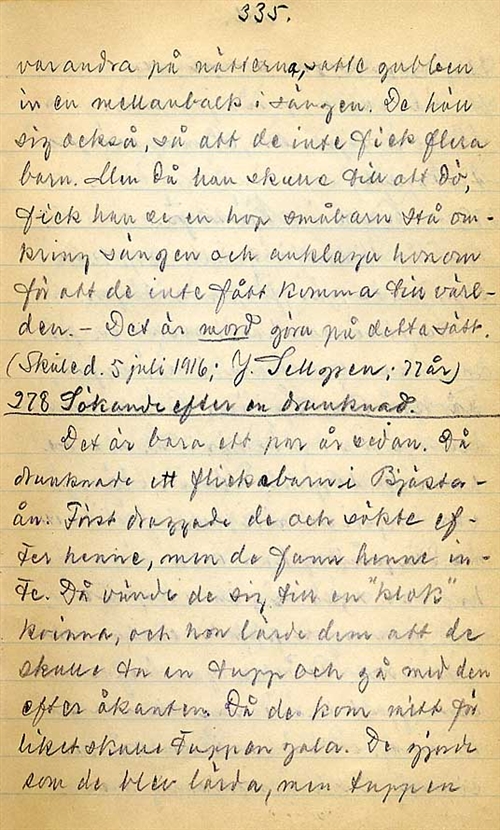 335.
varandra på nätterna, satte gubben
in en mellanbalk i sängen. De höll
sig också, så att de inte fick flera
barn. Men då han skulle till att dö,
fick han se en hop småbarn stå om-
kring sängen och anklaga honom
för att de inte fått komma till värl-
den. – Det är mord göra på detta sätt.
(Skuled. 5 juli 1916; J. Sellgren; 77 år)
278 Sökande efter en drunknad.
Det är bara ett par år sedan. Då
drunknade ett flickebarn i Bjästa-
ån. Först draggade de och sökte ef-
ter henne, men de fann henne in-
te. Då vände de sig till en "klok"
kvinna, och hon lärde dem att de
skulle ta en tupp och gå med den
efter åkanten. Då de kom mitt för
liket skulle tuppen gala. De gjorde
som de blev lärda, men tuppen